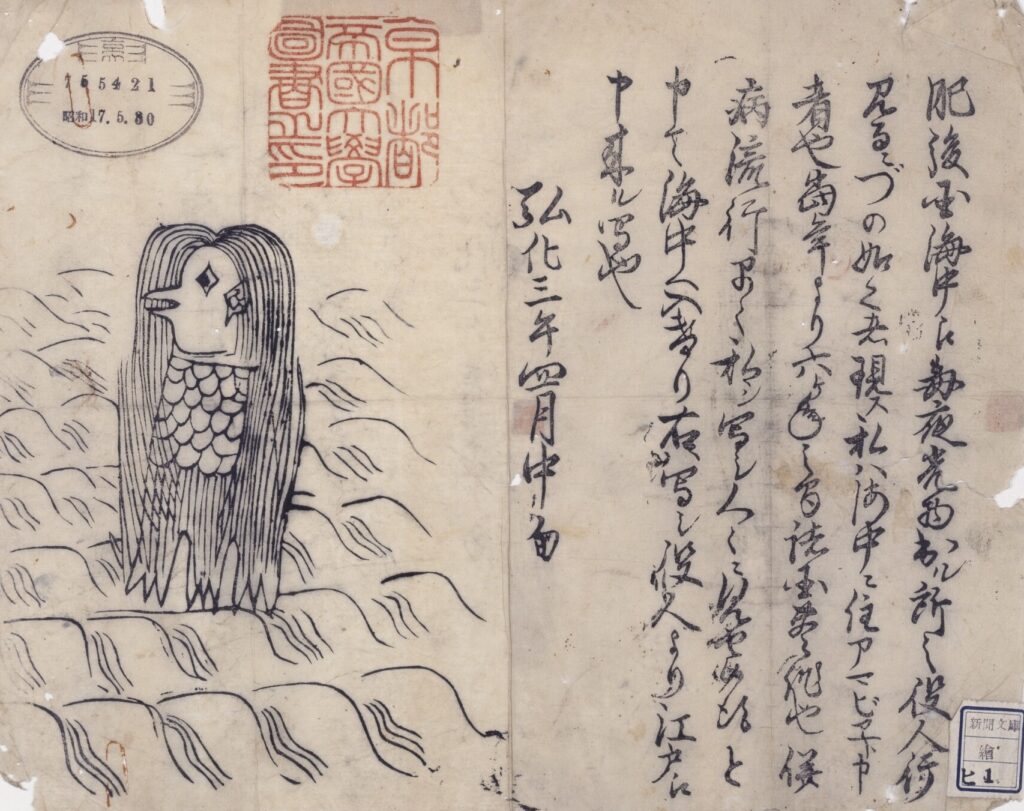 肥後国海中江毎夜光物出ル所之役人行
見るニづの如之者現ス私ハ海中ニ住アマビヱト申
者也當年より六ヶ年之間諸国豊作也併
病流行早々私ヲ写シ人々ニ見せ候得と
申て海中へ入けり右写シ役人より江戸江
申来ル写也
弘化三年四月中旬
京都
帝國大學
圖書之印
昭和17.5.30
新聞文庫
繪
ヒ1